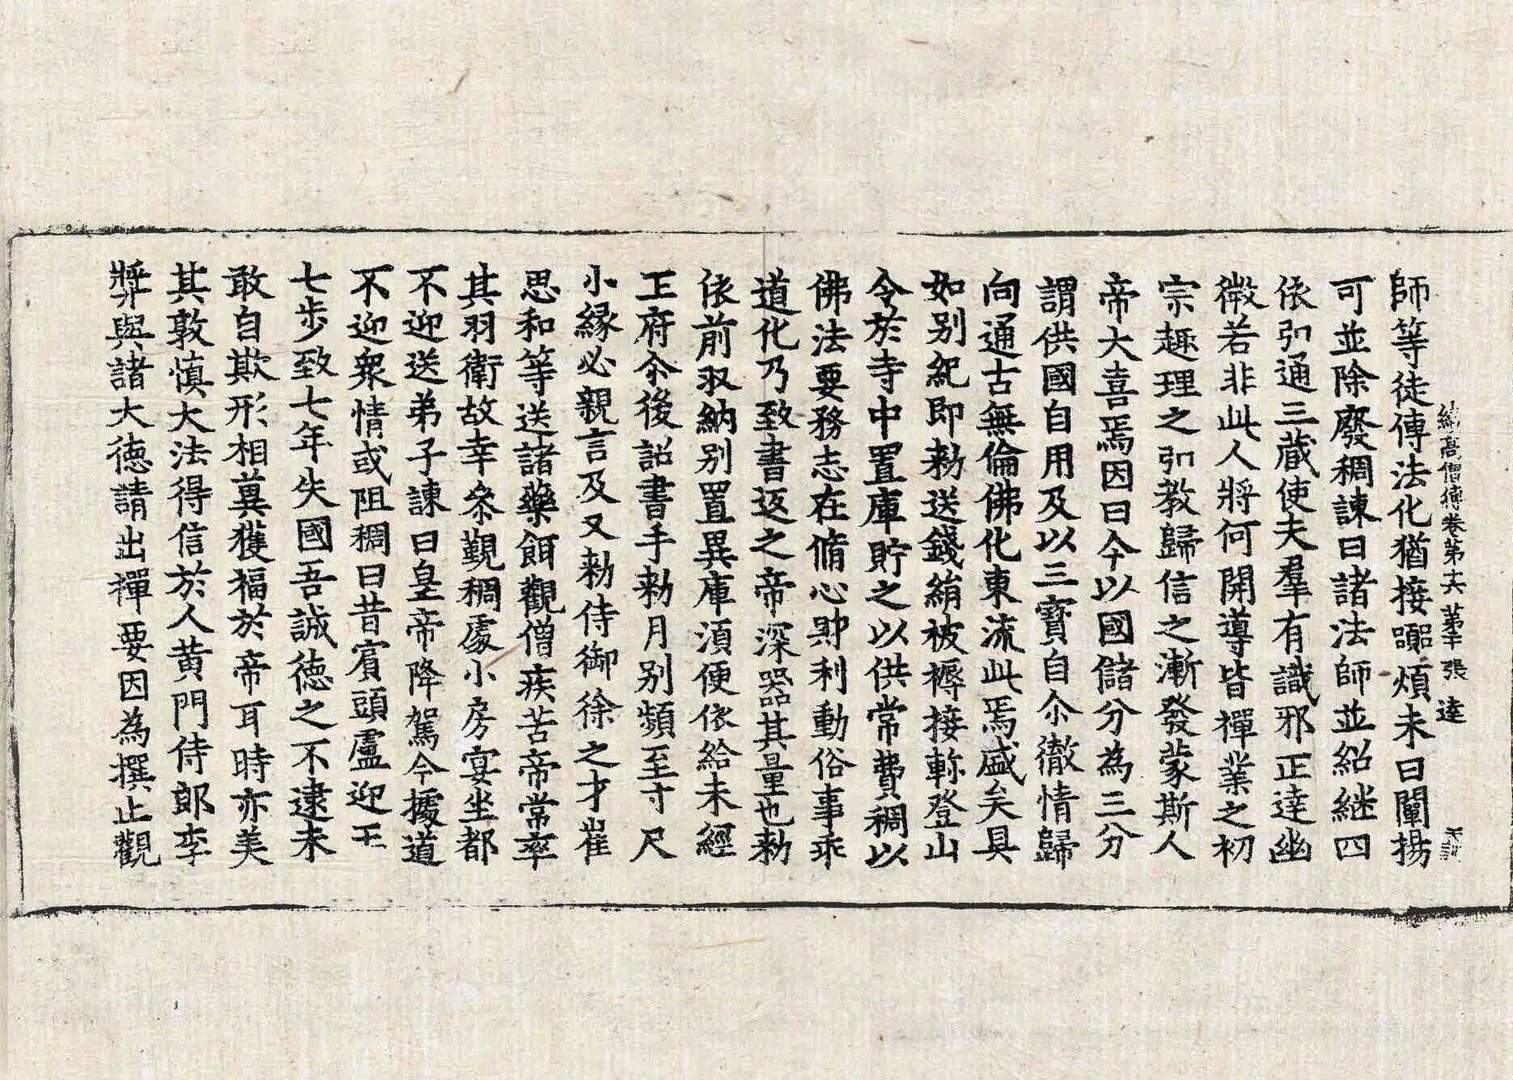 續高僧傳卷第十六 第二十張 達
師等徒傳法化猶接嚻煩未曰闡揚
可並除廢稠諫曰諸法師並紹継四
依弘通三蔵使夫羣有識邪正達幽
微若非此人將何開導皆禪業之初
宗趣理之弘教歸信之漸發蒙斯人
帝大喜焉因曰今以國儲分為三分
謂供國自用及以三寳自尒徹情歸
向通古無倫佛化東流此焉盛矣具
如別紀即勑送錢絹被褥接軫登山
令於寺中置庫貯之以供常費稠以
佛法要務志在脩心財利動俗事乖
道化乃致書返之帝深器其量也勑
依前収納別置異庫湏便依給未經
王府尒後詔書手勑月別頻至寸尺
小縁必親言及又勑侍御徐之才崔
思和等送諸藥餌觀僧疾苦帝常率
其羽衛故幸叅覲稠處小房宴坐都
不迎送弟子諫曰皇帝降駕今據道
不迎衆情或阻稠曰昔賓頭盧迎王
七步致七年失國吾誠徳之不逮未
敢自欺形相冀獲福於帝耳時亦美
其敦慎大法得信於人黄門侍郎李
奬與諸大徳請出禪要因為撰止觀